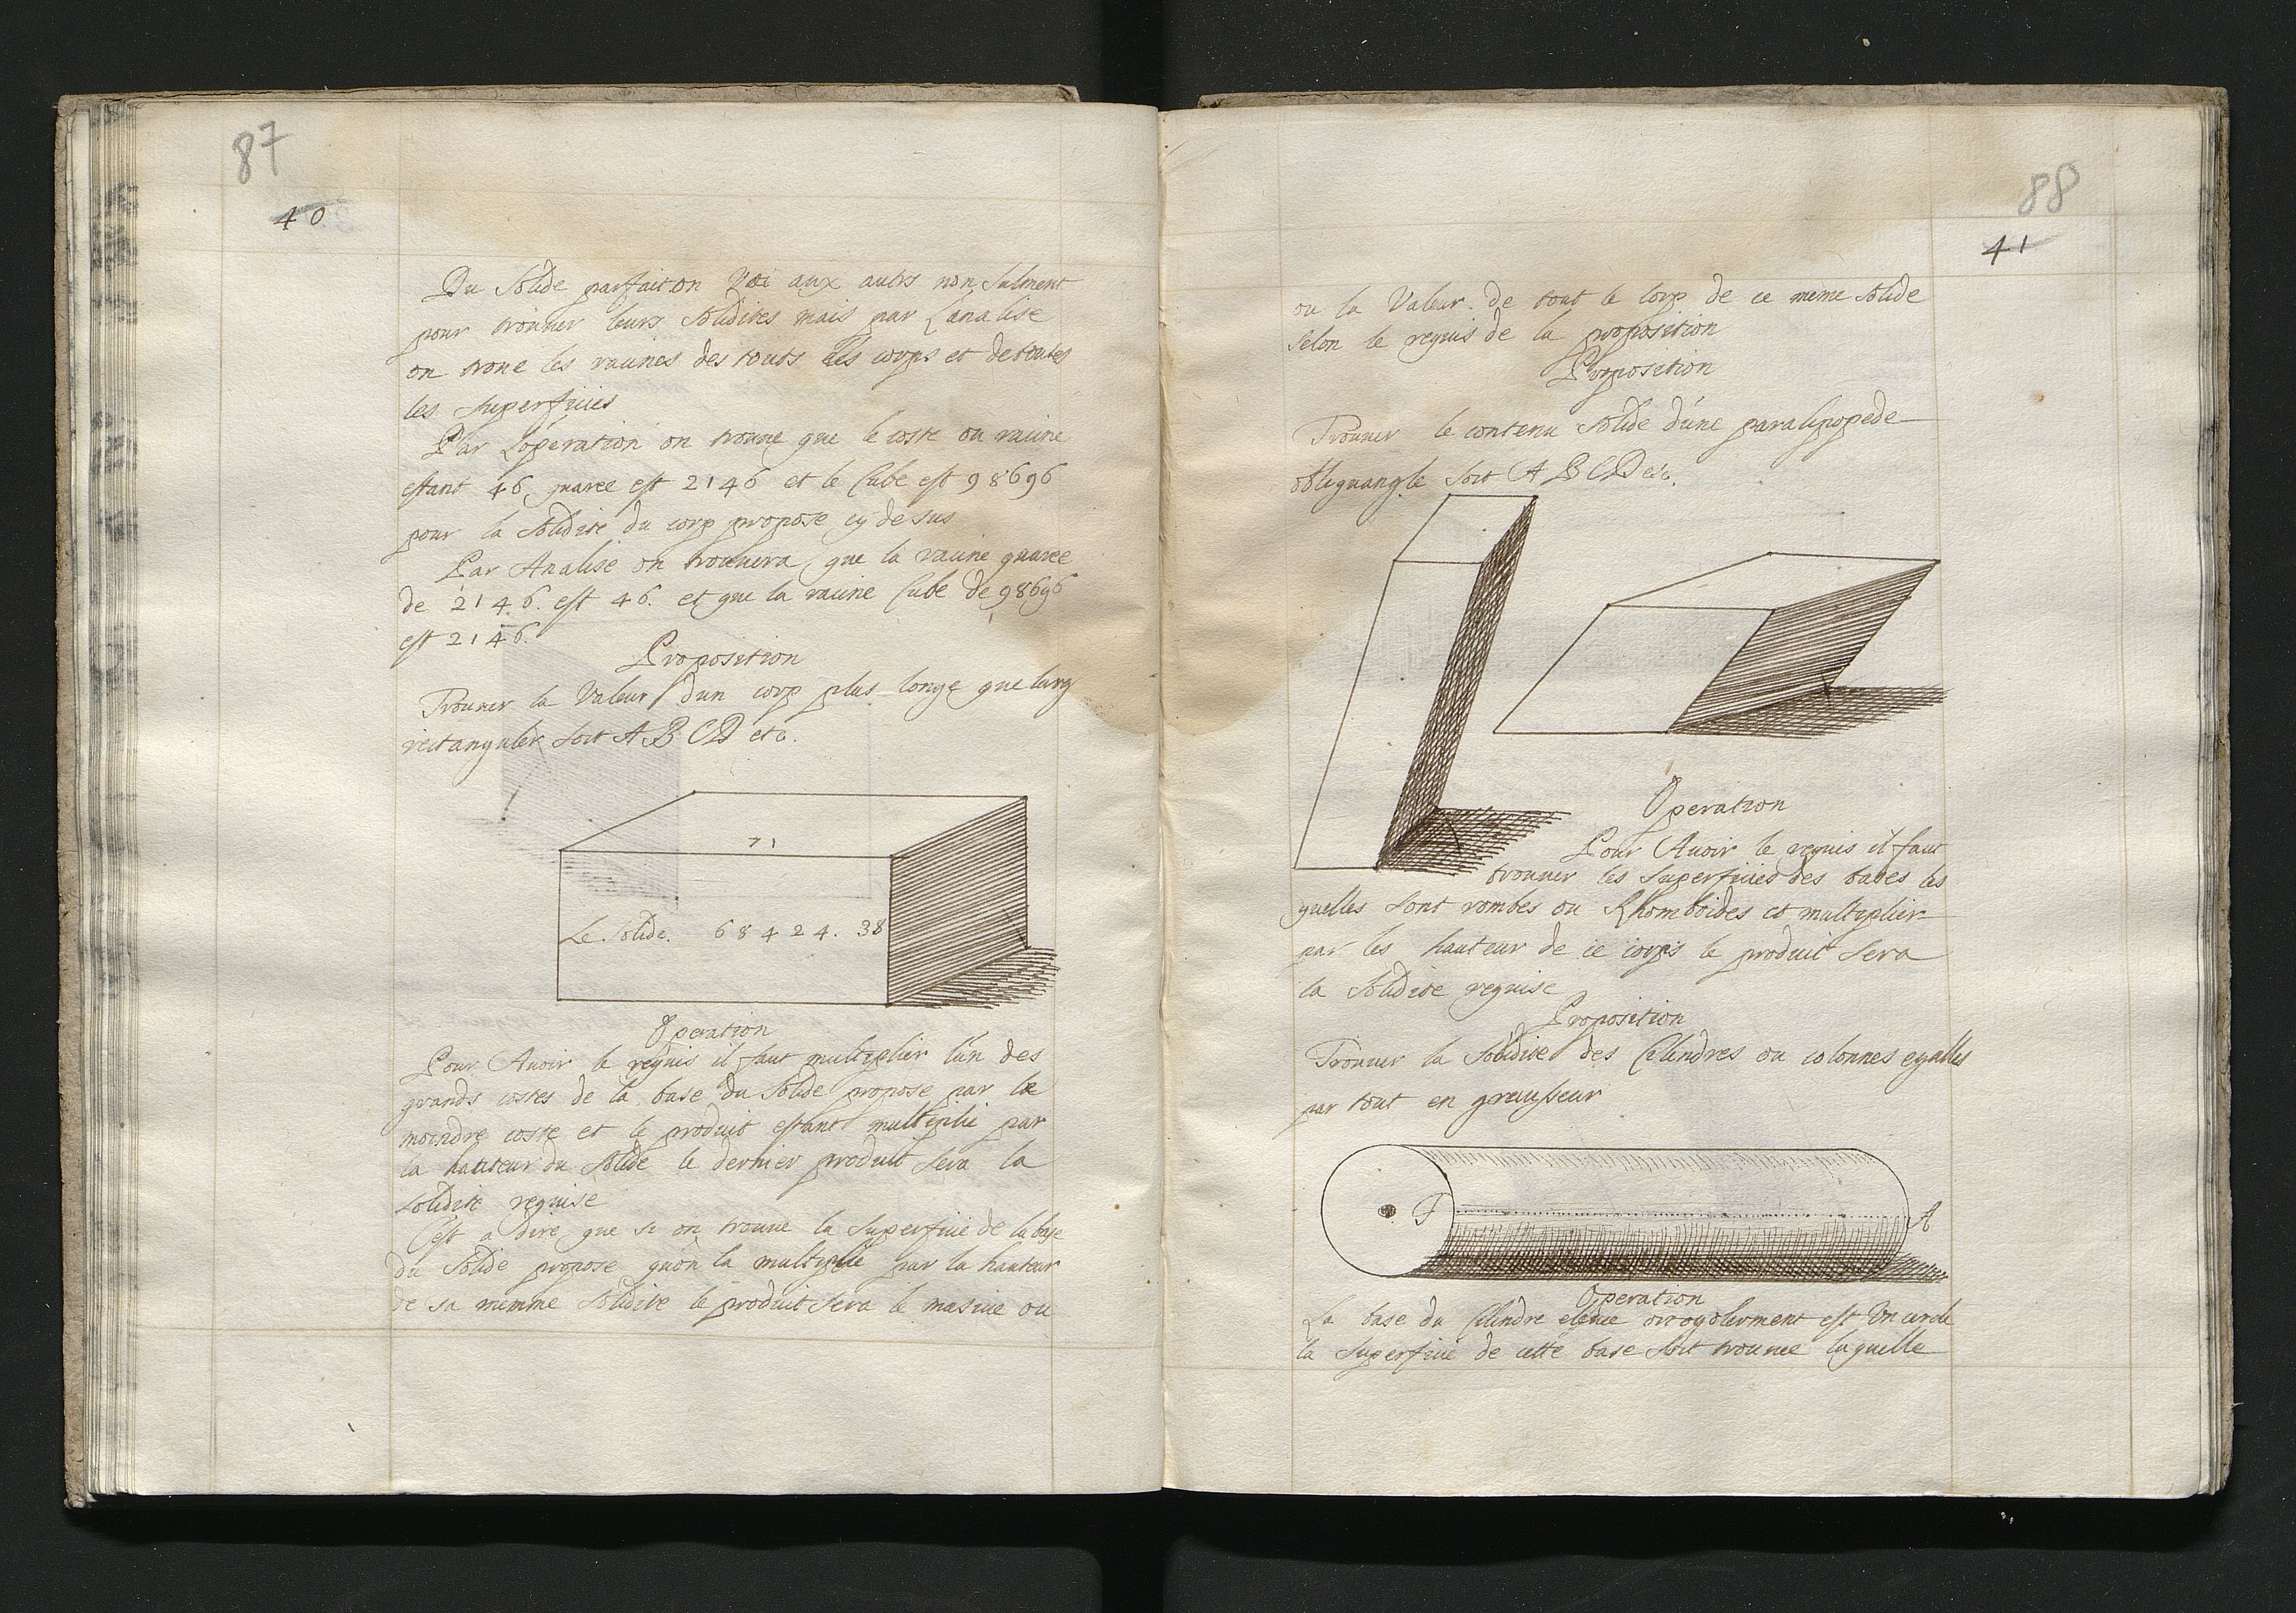 87
40
Du Solide parfait on Vai aux autrs non Sulment
pour trouuer leurs Solidites mais par Lanalise
on troue les racines des touts les corps et de toutes
les superficies
Par Loperation on trouue que le coste ou racine
estant 46, quaree est 2146 et le Cube est 98696
pour la Solidite du corp propose cy desus
Par Analise on trouuera, que la racine quaree
de 2146. est 46. et que la racine Cube de 98696
est 2146.
Proposition
Trouuer la Valeur dun corp plus longe que larg
rectanguler soit A B C D etc.
71
Le Solide. 68424. 38
Operation
Pour Auoir le requis il faut multiplier lún des
grands costes de la base du Solide propose par le
moindre coste et le produit estant multiplié par
la hauteur du Solide le dernier produit Sera la
Solidite requise
Cest a dire que si on trouue la Superficie de la base
du Solide propose quon la multiplie par la hauteur
de sa memme Solidite le produit Sera le masiue ou
88
41
ou la Valeur de tout le corp de ce meme Solide
Selon le requis de la proposition
Proposition
Trouuer le contenu Solide dúne paralipopede
obliquangle soit A B C D etc.
Operation
Pour Auoir le requis il faut
trouuer les Superficies des bases les
quelles Sont rombes ou Rhomboides et multiplier
par les hauteur de ce corps le produit Sera
la Solidite requise
Proposition
Trouuer la Solidite des Cilindres ou colonnes egalles
par tout en grausseur
F
A
Operation
La base du Cilindre eleuee ortogolerment est Un cercle
la Superficie de cette base Soit trouuee laquelle